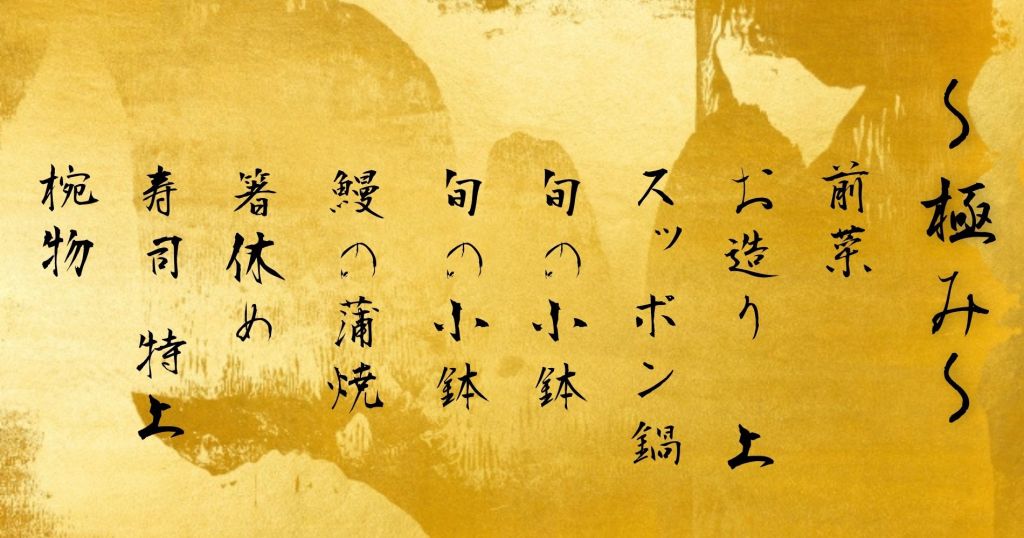 〜極み〜
前菜
お造り 上
スッポン鍋
旬の小鉢
旬の小鉢
鰻の蒲焼
箸休め
寿司 特上
椀物